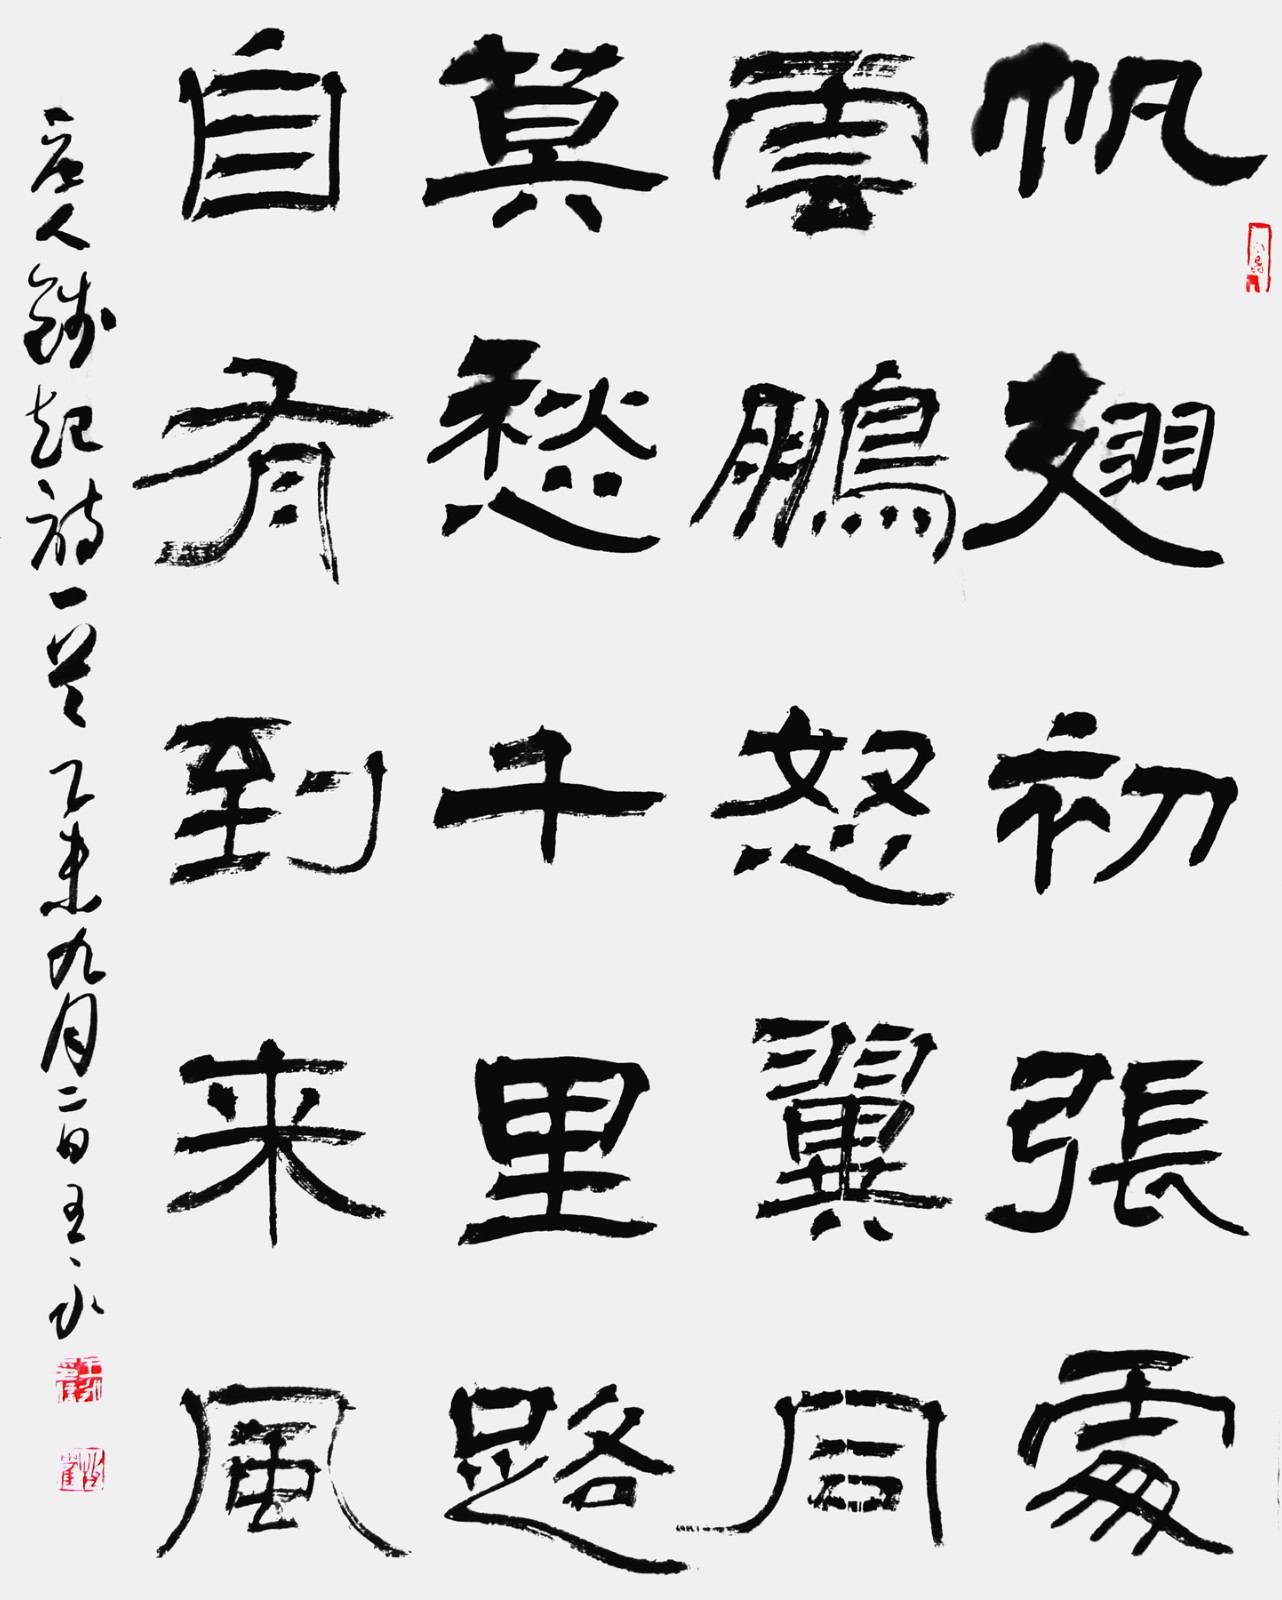 帆翅初張處
雲鵬怒翼同
莫愁千里路
自有到来風
唐人錢起詩一首乙未九月二日王永